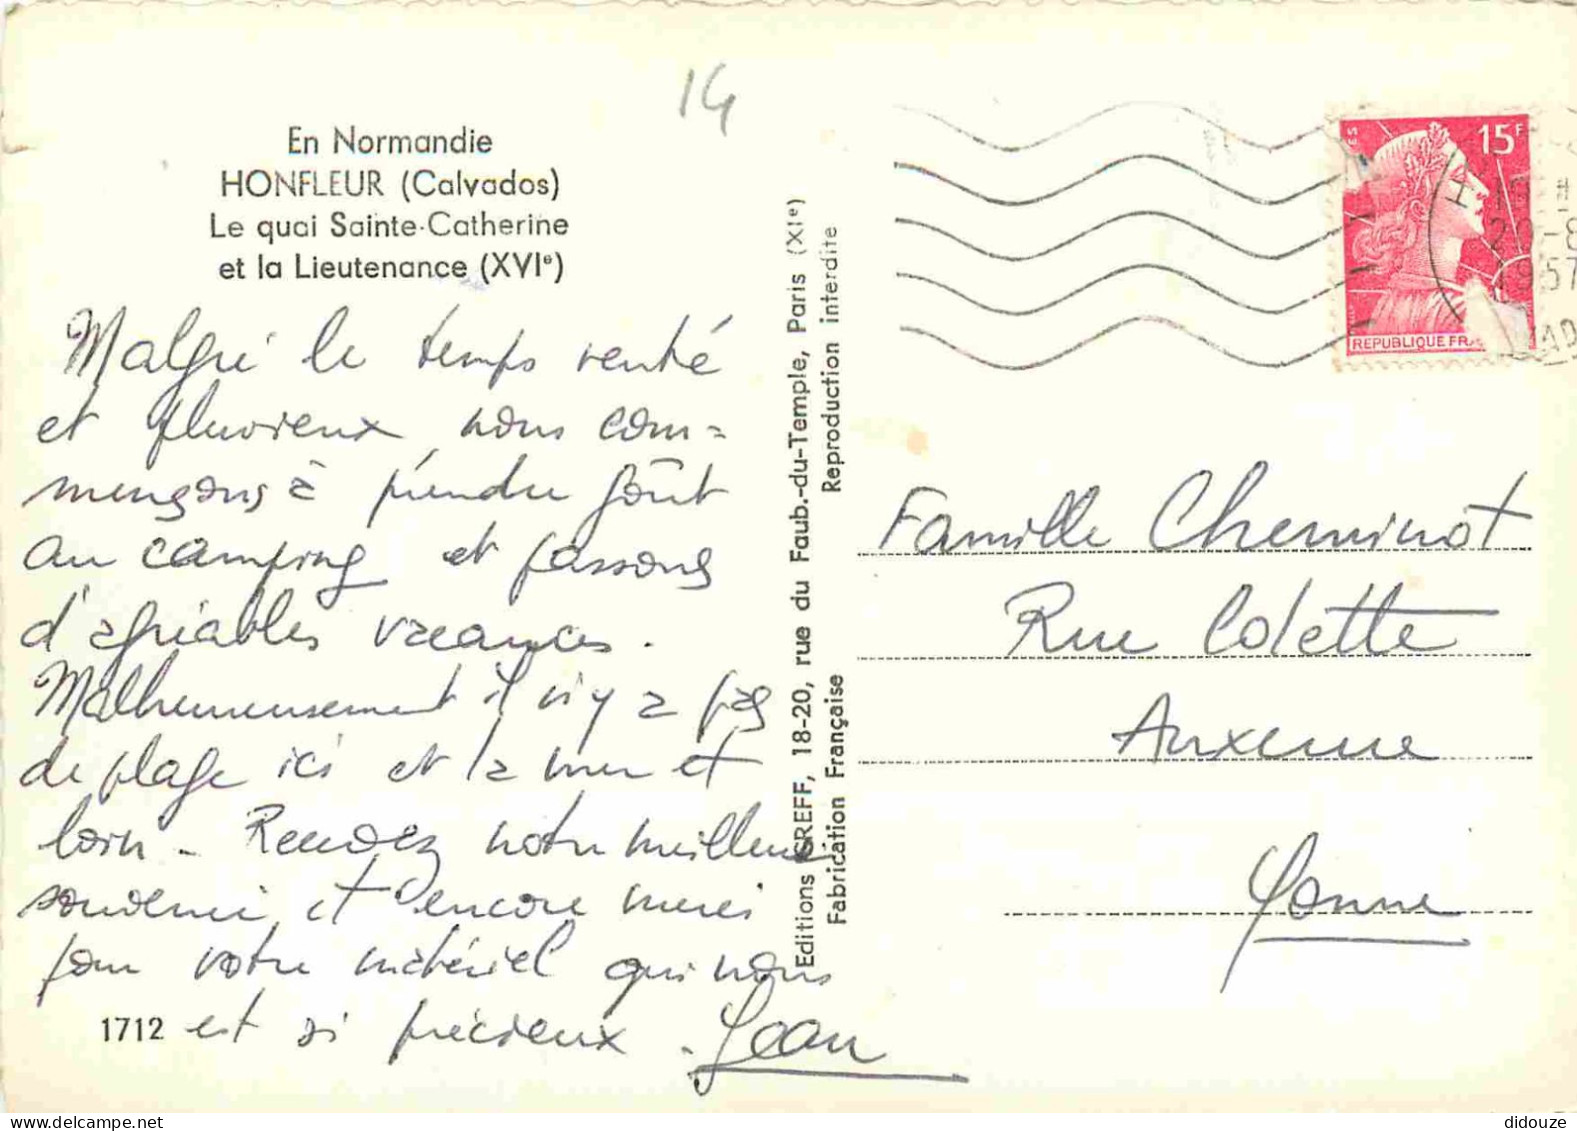 14
En Normandie
HONFLEUR (Calvados)
Le quai Sainte-Catherine
et la Lieutenance (XVIe)
Malgré le temps venté
et pluvieux nous com=
mençons à prendre goût
au camping et passons
d'agréables vacances.
Malheureusement il n'y a pas
de plage ici et la mer est
loin - Rendez notre meilleur
souvenir, et encore merci
pour votre matériel qui nous
est si précieux - Jean
1712
Editions GREFF, 18-20, rue du Faub.-du-Temple, Paris (XIe)
Fabrication Française Reproduction interdite
15F
REPUBLIQUE FRA
1957
Famille Cheminot
Rue Colette
Auxerre
Yonne
didouze